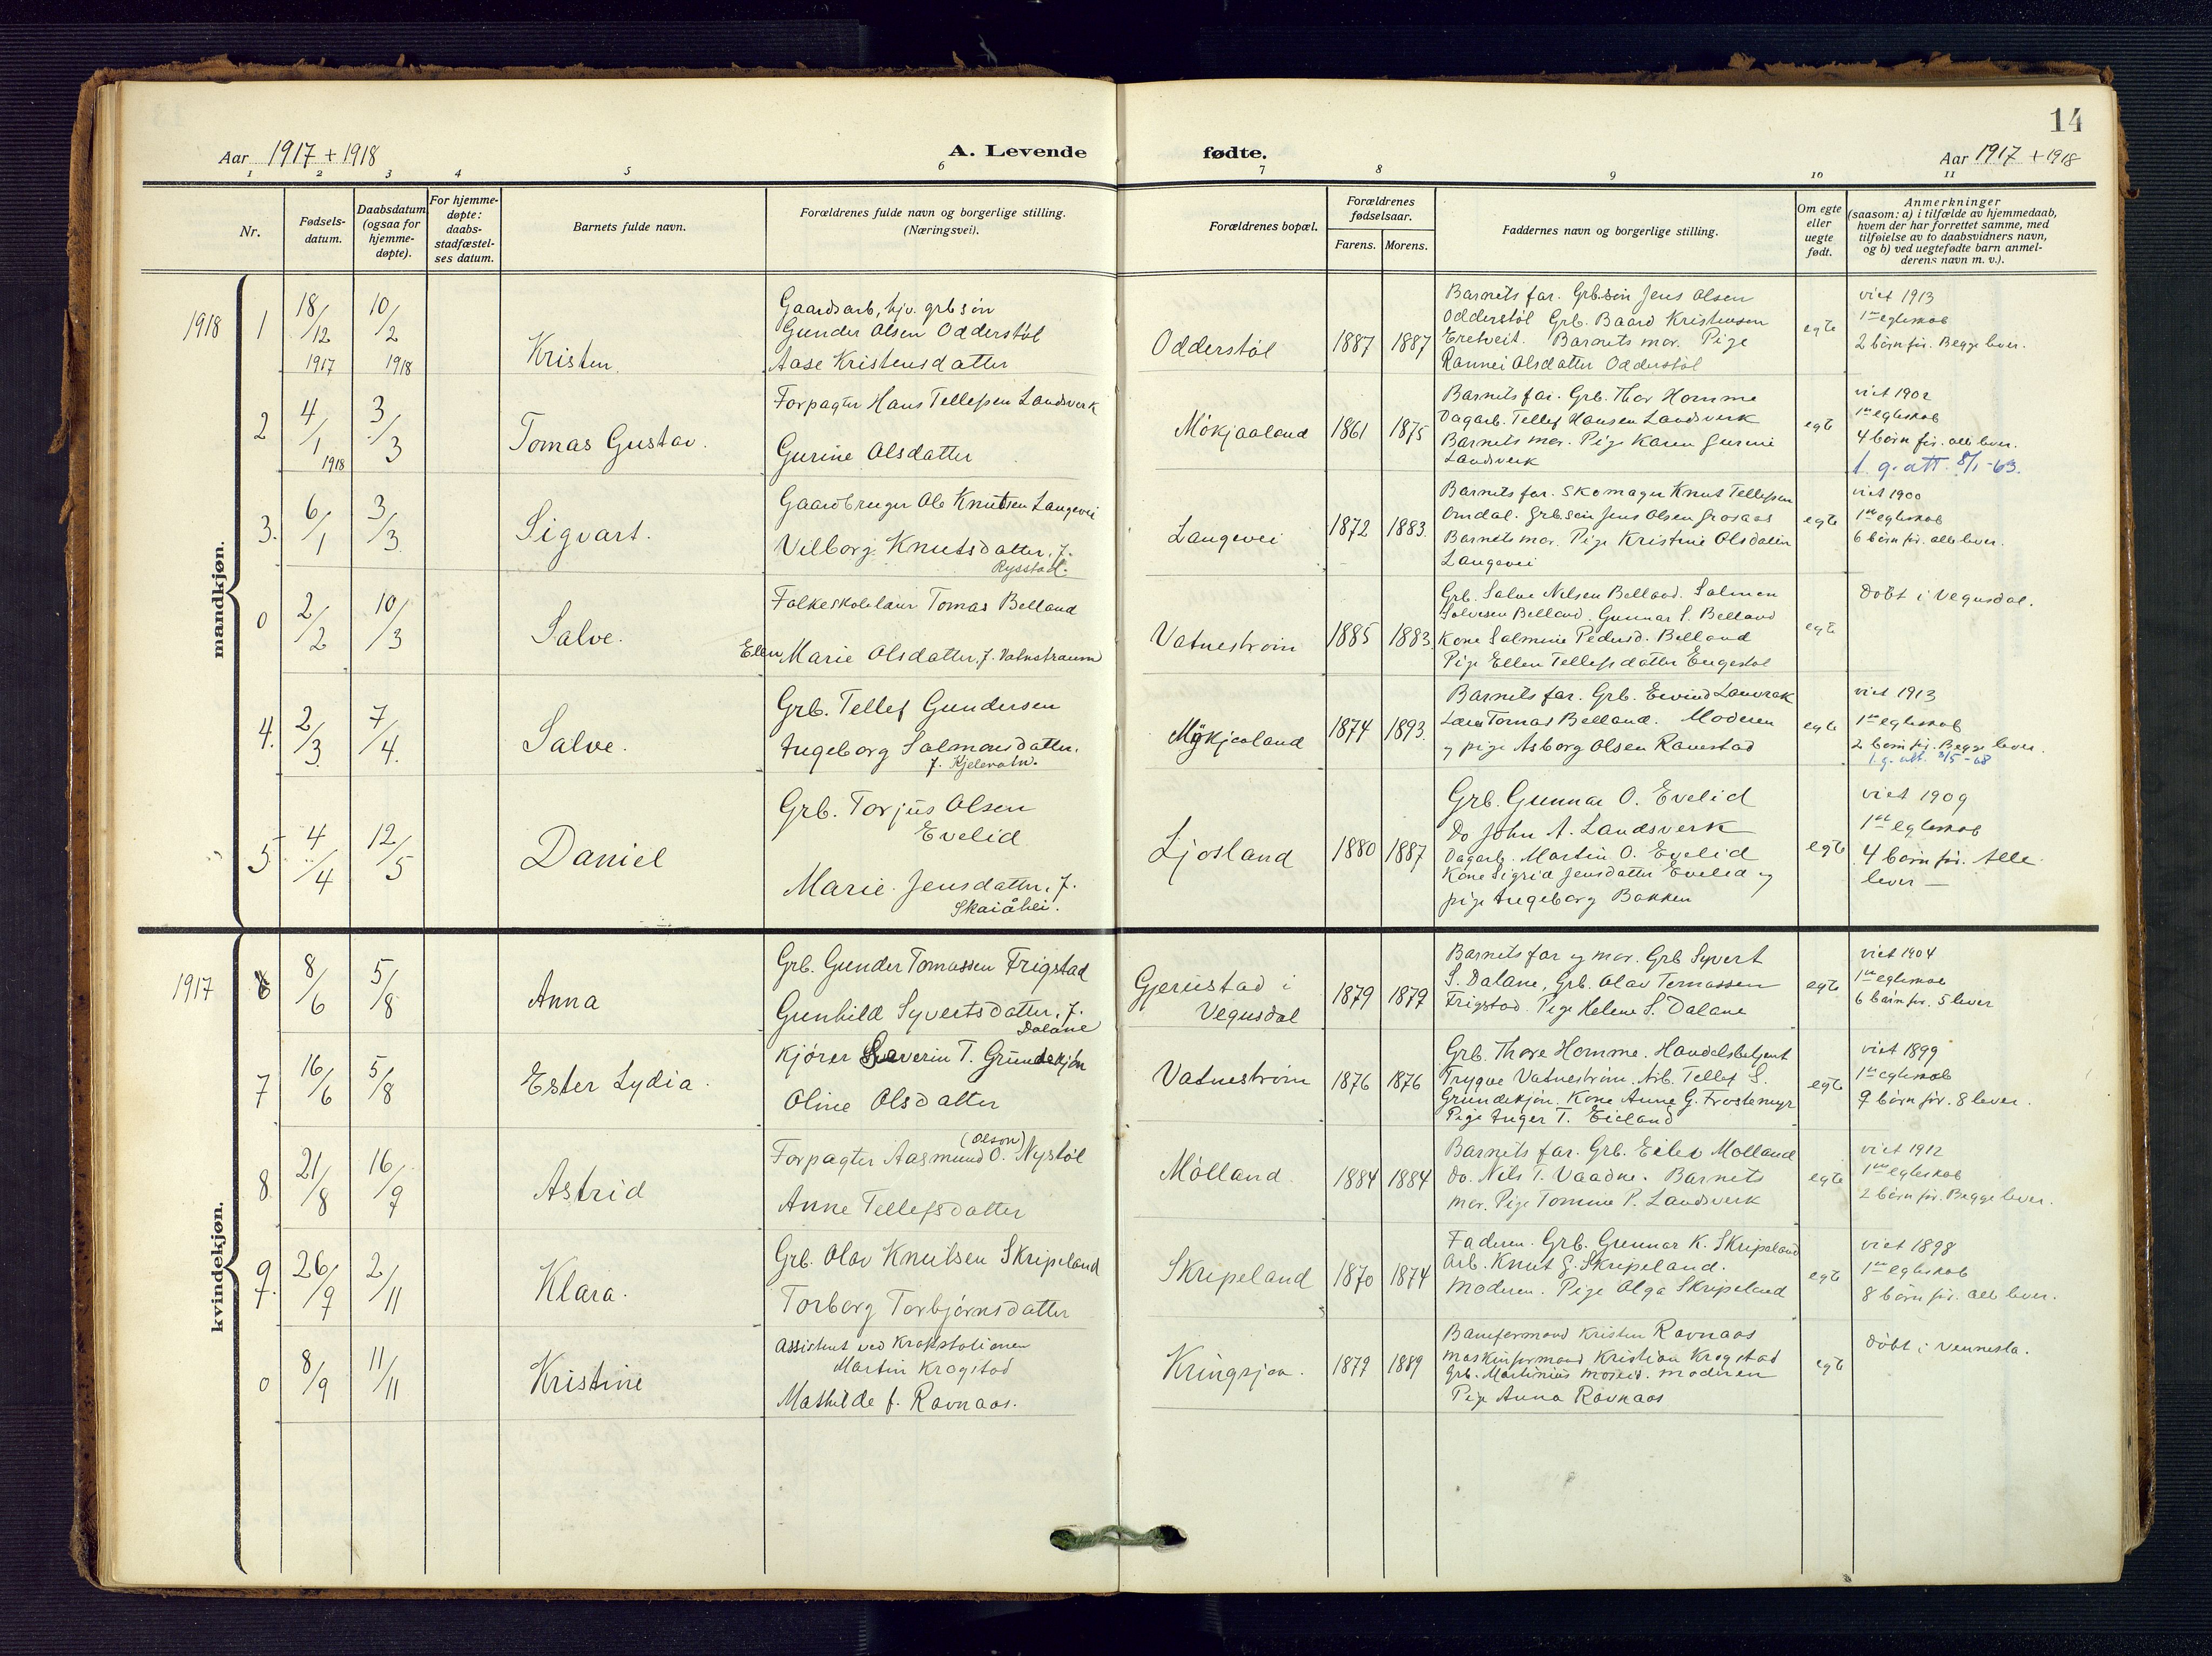 14
Aar 1917 + 1918
A. Levende
fødte.
Aar 1917 + 1918
1 2 3 4 5 6 7 8 9 10 11
Nr.
Fødsels-
datum.
Daabsdatum
(ogsaa for
hjemme-
døpte).
For hjemme-
døpte:
daabs-
stadfæstel-
ses datum.
Barnets fulde navn.
Forældrenes fulde navn og borgerlige stilling.
(Næringsvei).
Forældrenes bopæl.
Forældrenes
fødselsaar.
Farens. Morens.
Faddernes navn og borgerlige stilling.
Om egte
eller
uegte
født.
Anmerkninger
(saasom: a) i tilfælde av hjemmedaab,
hvem der har forrettet samme, med
tilføielse av to daabsvidners navn,
og b) ved uegtefødte barn anmel-
derens navn m. v.).
mandkjøn.
1918
1
18/12 1917
10/2 1918
Kristen.
Gaardsarb, hjv. grbsön
Gunder Olsen Odderstöl
Aase Kristensdatter
Odderstöl
1887 1887
Barnets far. Grb.sön Jens Olsen
Odderstöl Grb. Baard Kristensen
Eretveit. Barnets mor. Pige
Rannei Olsdatter Odderstöl
egte
viet 1913
1ste egteskab
2 börn för. Begge lever.
2
4/1 1918
3/3
Tomas Gustav.
Forpagter Hans Tellefsen Landsverk
Gurine Olsdatter
Mökjaaland
1861 1875
Barnets far. Grb. Thor Homme
Dagarb. Tellef Hansen Landsverk
Barnets mor. Pige Karen Gurine
Landsverk
egte
viet 1902
1ste egteskab
4 börn för. alle lever.
1 g. att. 8/1-63.
3.
6/1
3/3
Sigvart.
Gaardbruger Ole Knutsen Langevei
Vilborg Knutsdatter, f.
Rysstad.
Langevei
1872 1883.
Barnets far. Skomager Knut Tellefsen
Omdal. Grb.sön Jens Olsen Grosaas
Barnets mor. Pige Kristine Olsdatter
Langevei
egte
viet 1900
1ste egteskab
6 börn för. alle lever.
0
2/2
10/3
Salve.
Folkeskolelærer Tomas Belland
Ellen Marie Olsdatter, f. Vatnstraum
Vatneström
1885 1883.
Grb. Salve Nilsen Belland. Salmon
Salvesen Belland. Gunnar S. Belland
Kone Salmine Pedersd. Belland
Pige Ellen Tellefsdatter Engestöl
egte
Döbt i Vegusdal.
4.
2/3
7/4.
Salve.
Grb. Tellef Gundersen
Ingeborg Salmonsdatter.
f. Kjelevatn.
Mykjaaland
1874 1893.
Barnets far. Grb. Eivind Lauvrak
Lærer Tomas Belland. Moderen
og pige Asborg Olsen Ranestad
egte
viet 1913
1ste egteskab
2 börn för. Begge lever.
1. g. att. 2/5-68
5
4/4
12/5
Daniel
Grb. Torjus Olsen
Evelid
Marie Jensdatter, f.
Skaiåhei.
Ljosland
1880 1887
Grb. Gunnar O. Evelid
Do John A. Landsverk
Dagarb. Martin O. Evelid
Kone Sigrid Jensdatter Evelid og
pige Ingeborg Bakken
egte
viet 1909
1ste egteskab
4 börn för. Alle
lever —
kvindekjøn.
1917
6
8/6
5/8
Anna
Grb. Gunder Tomassen Frigstad
Gunhild Syvertsdatter, f.
Dalane
Gjerustad i
Vegusdal
1879 1879
Barnets far og mor. Grb Syvert
S. Dalane, Grb. Olav Tomassen
Frigstad. Pige Helene S. Dalane
egte
viet 1904
1ste egteskab
6 börn för. 5 lever
7
16/6
5/8
Ester Lydia.
Kjörer Severin T. Grundekjön
Oline Olsdatter
Vatneström
1876 1876
Grb. Thore Homme. Handelsbetjent
Trygve Vatneström. Arb. Tellef S.
Grundekjön. Kone Anne G. Frostemyr
Pige Inger T. Eieland
egte
viet 1899
1ste egteskab
9 börn för. 8 lever.
8
21/8
16/9
Astrid
(Olson)
Forpagter Aasmund O. Nystöl
Anne Tellefsdatter
Mölland.
1884 1884
Barnets far. Grb. Eilev Mölland
do. Nils T. Vaadne. Barnets
mor. Pige Tomine P. Landsverk
egte
viet 1912
1ste egteskab
2 börn för. Begge lever.
9.
26/9
2/11
Klara.
Grb. Olav Knutsen Skripeland
Torborg Torbjörnsdatter
Skripeland
1870 1874
Faderen. Grb. Gunnar K. Skripeland
Arb. Knut G. Skripeland.
Moderen. Pige Olga Skripeland
egte
viet 1898
1ste egteskab
8 börn för. alle lever.
0
8/9
11/11
Kristine
Assistent ved Kraftstationen
Martin Krogstad
Mathilde f. Ravnaas.
Kringsjaa.
1879 1889
Baneformand Kristen Ravnaas
Maskinformand Kristian Krogstad
Grb. Martinius Moseid. Moderen
Pige Anna Ravnaas
egte
Döbt i Vennesla.